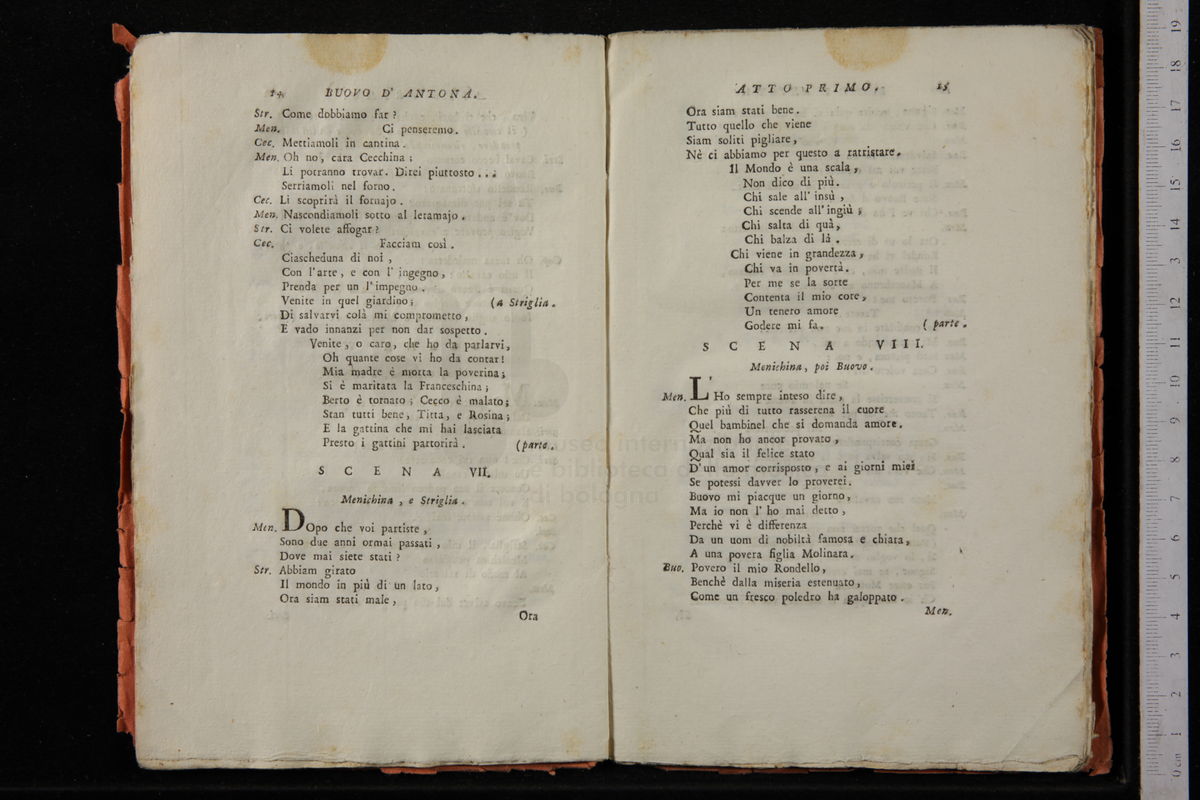 14 BUOVO D' ANTONA.
Str. Come dobbiamo far ?
Men. Ci penseremo .
Cec. Mettiamoli in cantina .
Men. Oh no , cara Cecchina ;
Li potranno trovar . Direi piuttosto . . .
Serriamoli nel forno .
Cec. Li scoprirà il fornajo .
Men. Nascondiamoli sotto al letamajo .
Str. Ci volete affogar ?
Cec. Facciam così .
Ciascheduna di noi ,
Con l'arte , e con l' ingegno ,
Prenda per un l' impegno .
Venite in quel giardino ; (a Striglia .
Di salvarvi colà mi comprometto ,
E vado innanzi per non dar sospetto .
Venite , o caro, che ho da parlarvi,
Oh quante cose vi ho da contar !
Mia madre è morta la poverina ;
Si è maritata la Franceschina ;
Berto è tornato ; Cecco è malato ;
Stan tutti bene , Titta , e Rosina ;
E la gattina che mi hai lasciata
Presto i gattini partorirà . (parte .
SCENA VII.
Menichina , e Striglia .
Men. DOpo che voi partiste ,
Sono due anni ormai passati ,
Dove mai siete stati ?
Str. Abbiam girato
Il mondo in più di un lato ,
Ora siam stati male ,
Ora
ATTO PRIMO. 15
Ora siam stati bene .
Tutto quello che viene
Siam soliti pigliare ,
Nè ci abbiamo per questo a ratristare .
Il Mondo è una scala ,
Non dico di più .
Chi sale all' insù ,
Chi scende all' ingiù ;
Chi salta di quà ,
Chi balza di là .
Chi viene in grandezza ,
Chi va in povertà .
Per me se la sorte
Contenta il mio core ,
Un tenero amore
Godere mi fa . ( parte .
SCENA VIII.
Menichina , poi Buovo .
Men. L' Ho sempre inteso dire ,
Che più di tutto rasserena il cuore
Quel bambinel che si domanda amore .
Ma non ho ancor provato ,
Qual sia il felice stato
D' un amor corrisposto , e ai giorni miei
Se potessi davver lo proverei .
Buovo mi piacque un giorno ,
Ma io non l' ho mai detto ,
Perchè vi è differenza
Da un uom di nobiltà famosa e chiara ,
A una povera figlia Molinara .
Buo. Povero il mio Rondello ,
Benchè dalla miseria estenuato ,
Come un fresco poledro ha galoppato .
Men.
museo
biblioteca
di bologna
0 cm 1 2 3 4 5 6 7 8 9 10 11 12 13 14 15 16 17 18 19